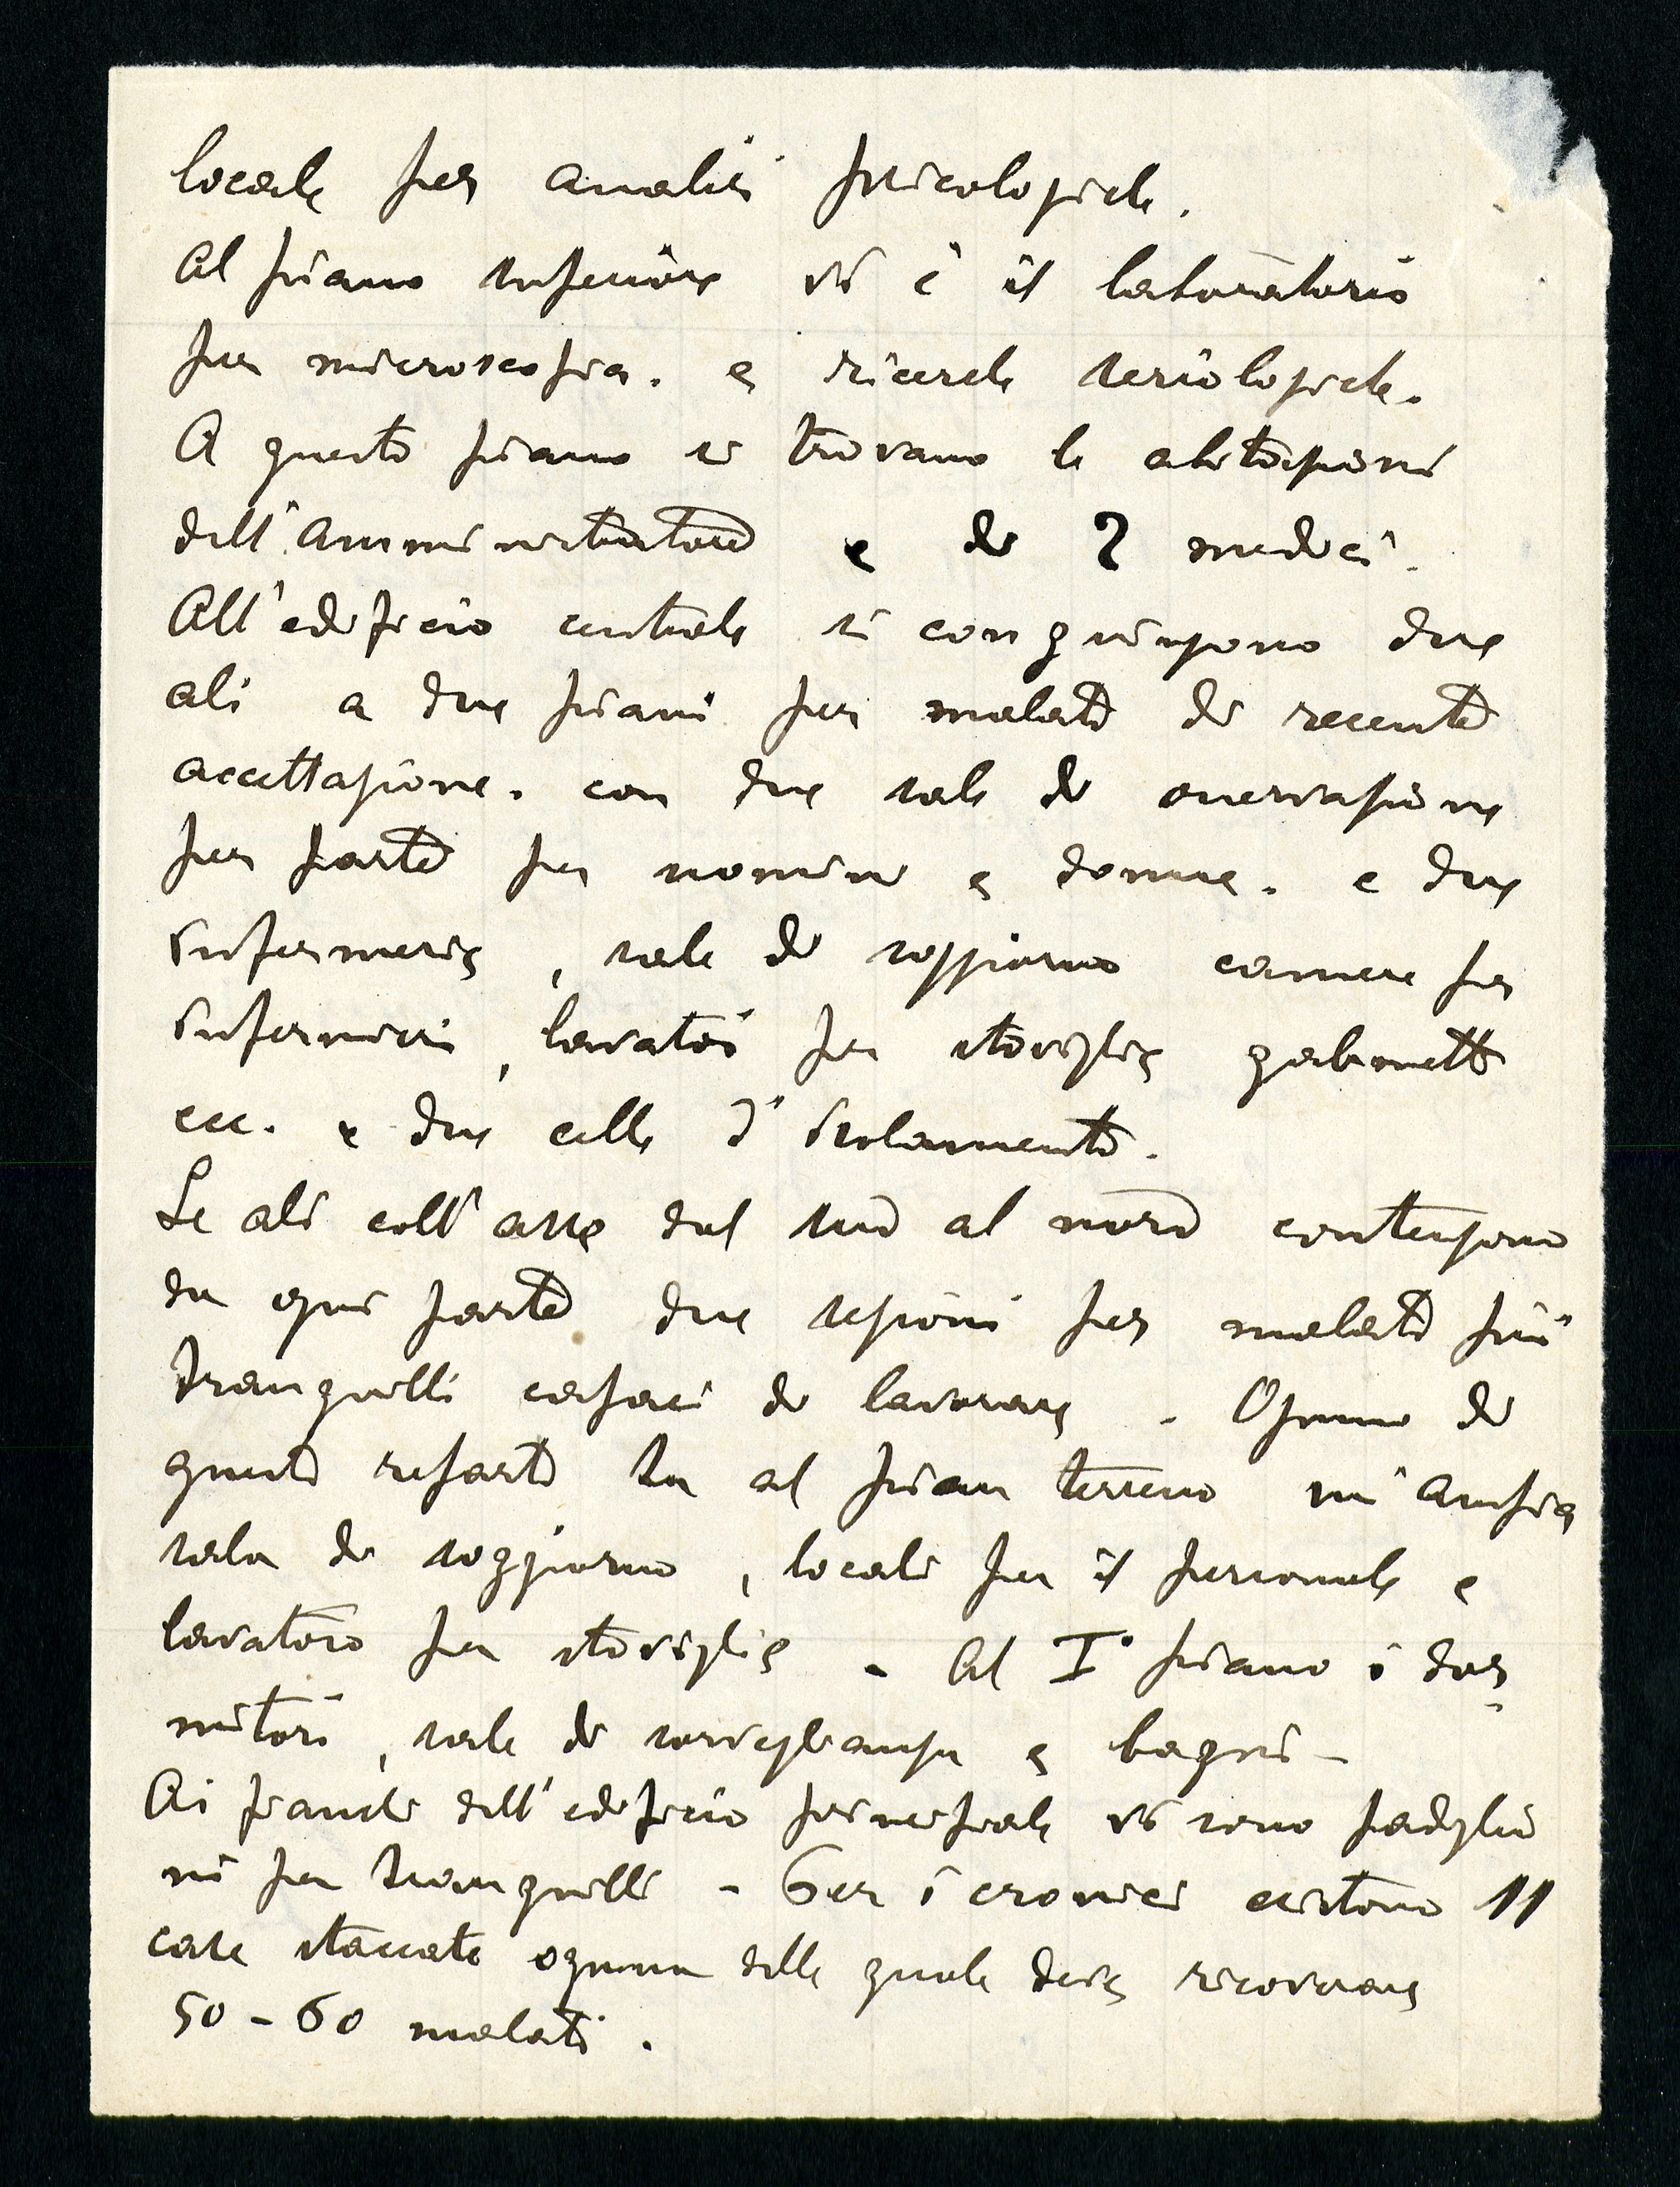 locale per analisi psicologiche.
Al piano inferiore vi è il laboratorio
per microscopia. e ricerche seriologiche.
A questo piano si trovano le abitazioni
dell'amministratore e di 2 medici.
All'edificio centrale si congiungono due
ali a due piani per malati di recente
accettazione. con due sale di osservazione
per parte per uomini e donne. e due
infermerie, sale di soggiorno camere per
infermieri, lavatoi per stoviglie gabinetti
ecc. e due celle d'isolamento.
Le ali coll'asse dal sud al nord contengono
da ogni parte due sezioni per malati più
tranquilli capaci di lavorare. Ognuno di
questi reparti ha al pian terreno un'ampia
sala di soggiorno, locali per il personale e
lavatoio per stoviglie. Al I° piano i dor-
mitori, sale di sorveglianza e bagni-
Ai fianchi dell'edificio principale vi sono padiglio
ni per tranquilli - Per i cronici esistono 11
case staccate ognuna delle quale deve ricoverare
50-60 malati.